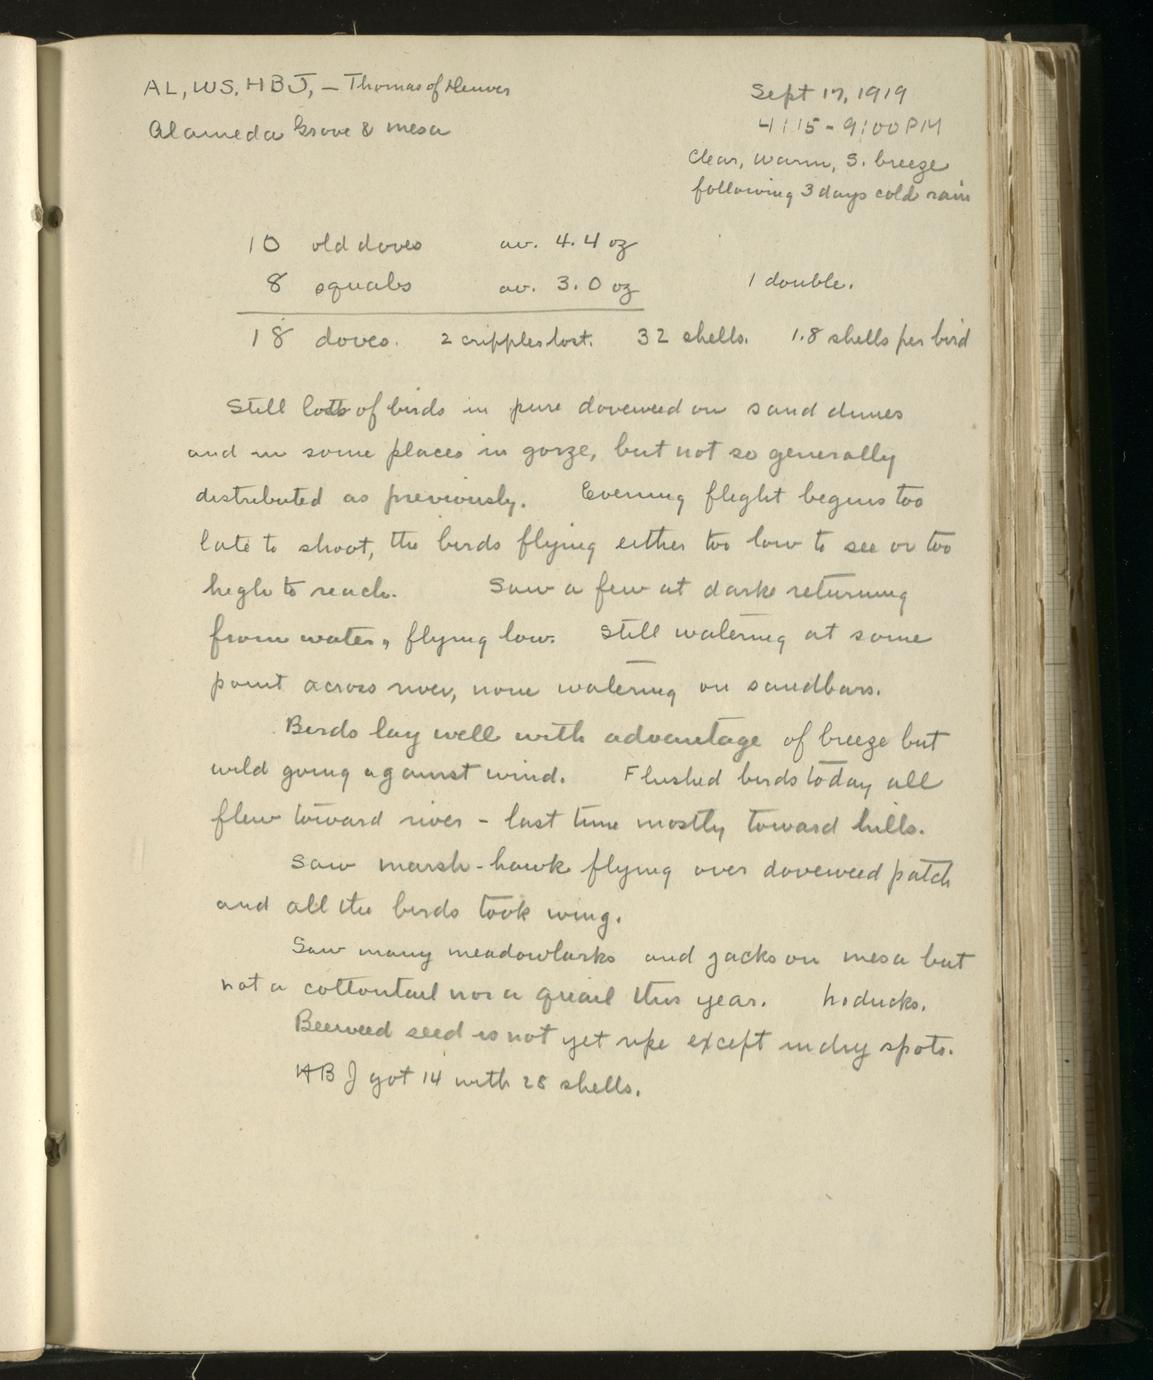 AL, WS, HBJ, – Thomas of Denver
Alameda Grove & mesa
Sept 17, 1919
4:15 - 9:00 PM
Clear, warm, S. breeze
following 3 days cold rain
10 old doves av. 4.4 oz
8 squabs av. 3.0 oz 1 double.
18 doves. 2 cripples lost. 32 shells. 1.8 shells per bird
Still lots of birds in pure doveweed on sand dunes
and in some places in gorze, but not so generally
distributed as previously. Evening flight begins too
late to shoot, the birds flying either too low to see or too
high to reach. Saw a few at dark returning
from water, flying low. Still watering at some
point across river, none watering on sandbars.
Birds lay well with advantage of breeze but
wild going against wind. Flushed birds today all
flew toward river - last time mostly toward hills.
Saw marsh-hawk flying over doveweed patch
and all the birds took wing.
Saw many meadowlarks and jacks on mesa but
not a cottontail nor a quail this year. No ducks.
Beeweed seed is not yet ripe except in dry spots.
HBJ got 14 with 28 shells.